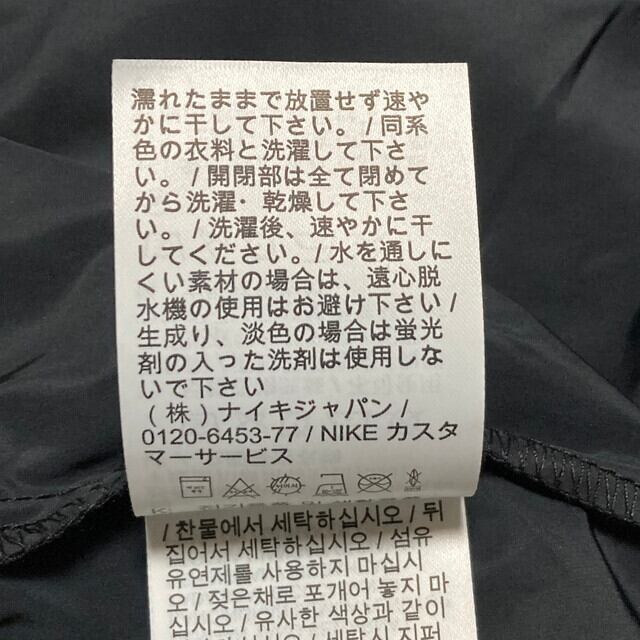 濡れたままで放置せず速や
かに干して下さい。/同系
色の衣料と洗濯して下さ
い。/開閉部は全て閉めて
から洗濯・乾燥して下さ
い。/洗濯後、速やかに干
してください。/水を通しに
くい素材の場合は、遠心脱
水機の使用はお避け下さい/
生成り、淡色の場合は蛍光
剤の入った洗剤は使用しな
いで下さい
(株)ナイキジャパン/
0120-6453-77/NIKE カスタ
マーサービス
/찬물에서 세탁하십시오/뒤
집어서 세탁하십시오/섬유
유연제를 사용하지 마십시
오/젖은채로 포개어 놓지 마
십시오/유사한 색상과 같이
세탁하십시오/세탁시 지퍼